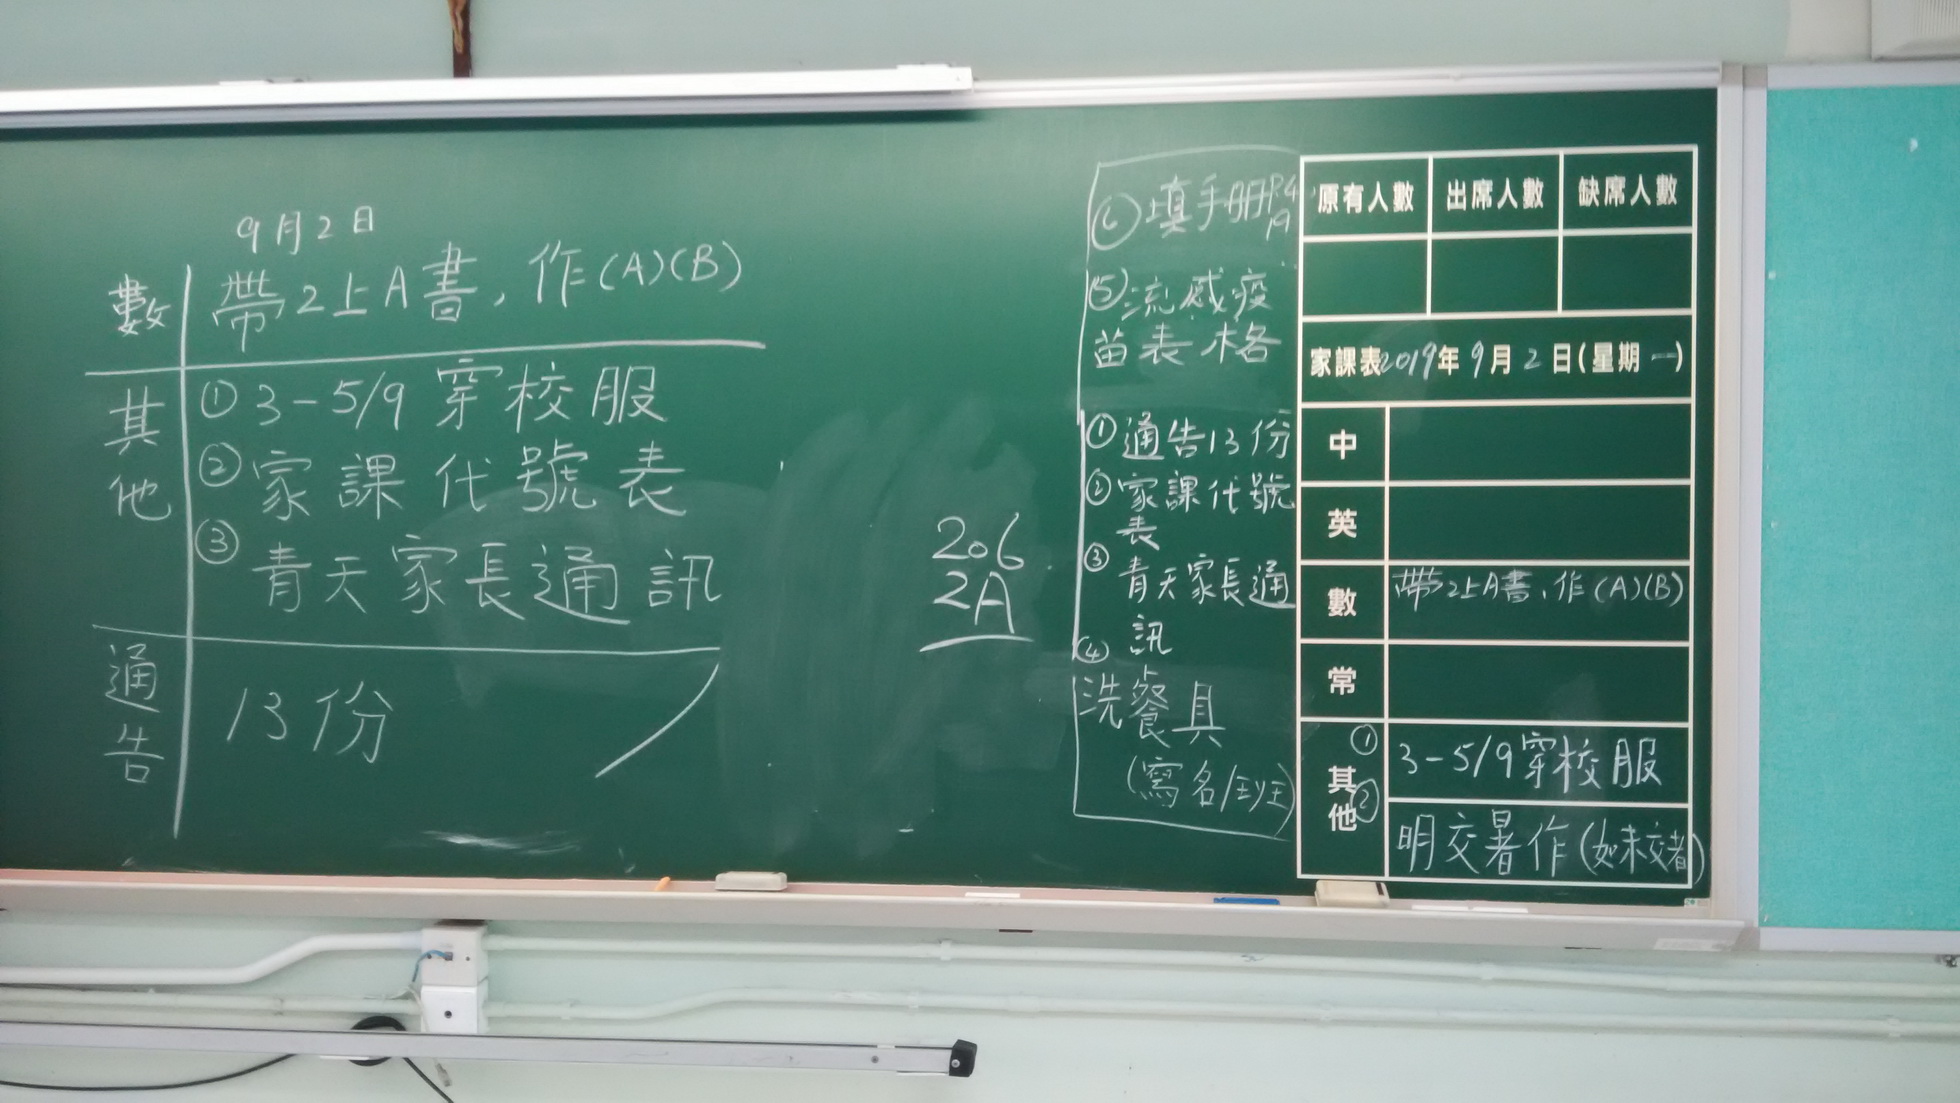 9月2日
數 帶2上A書，作(A)(B)
其他 ①3-5/9穿校服
②家課代號表
③青天家長通訊
通告 13份
206
2A
⑥填手冊P.4, 19
⑤流感疫
苗表格
①通告13份
②家課代號
表
③青天家長通
訊
④洗餐具
(寫名/班)
原有人數 出席人數 缺席人數
家課表2019年9月2日(星期一)
中
英
數 帶2上A書，作(A)(B)
常
其他 ①3-5/9穿校服
②明交暑作(如未交者)